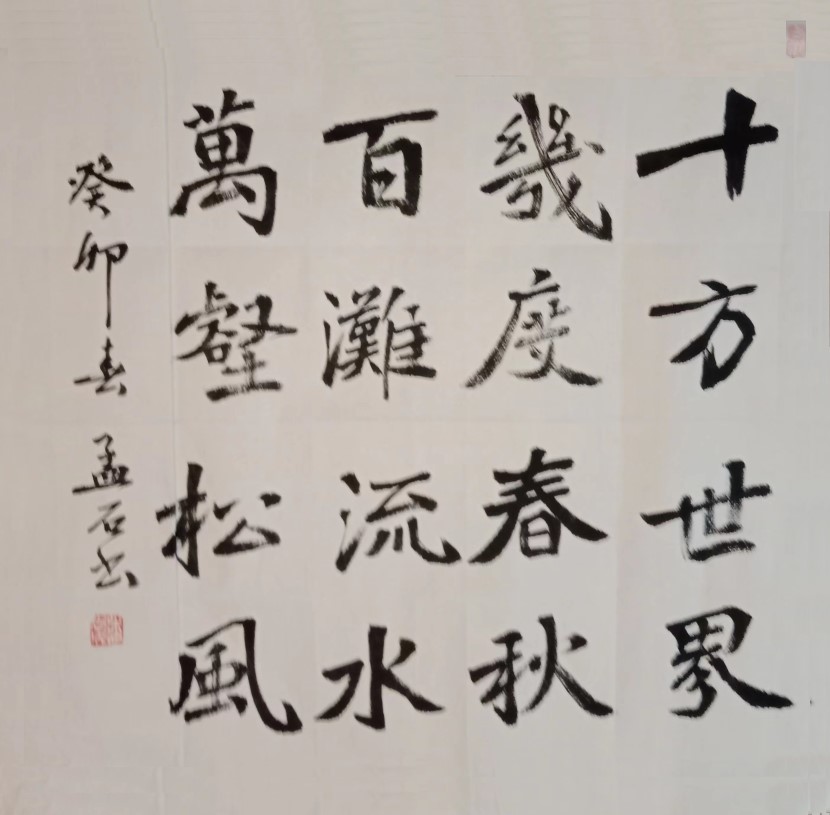 十方世界
幾度春秋
百灘流水
萬壑松風
癸卯春 孟石书